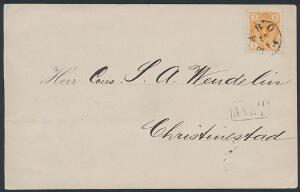 ÅBO
Herr Cons. S. A. Wendelin
Christinestad